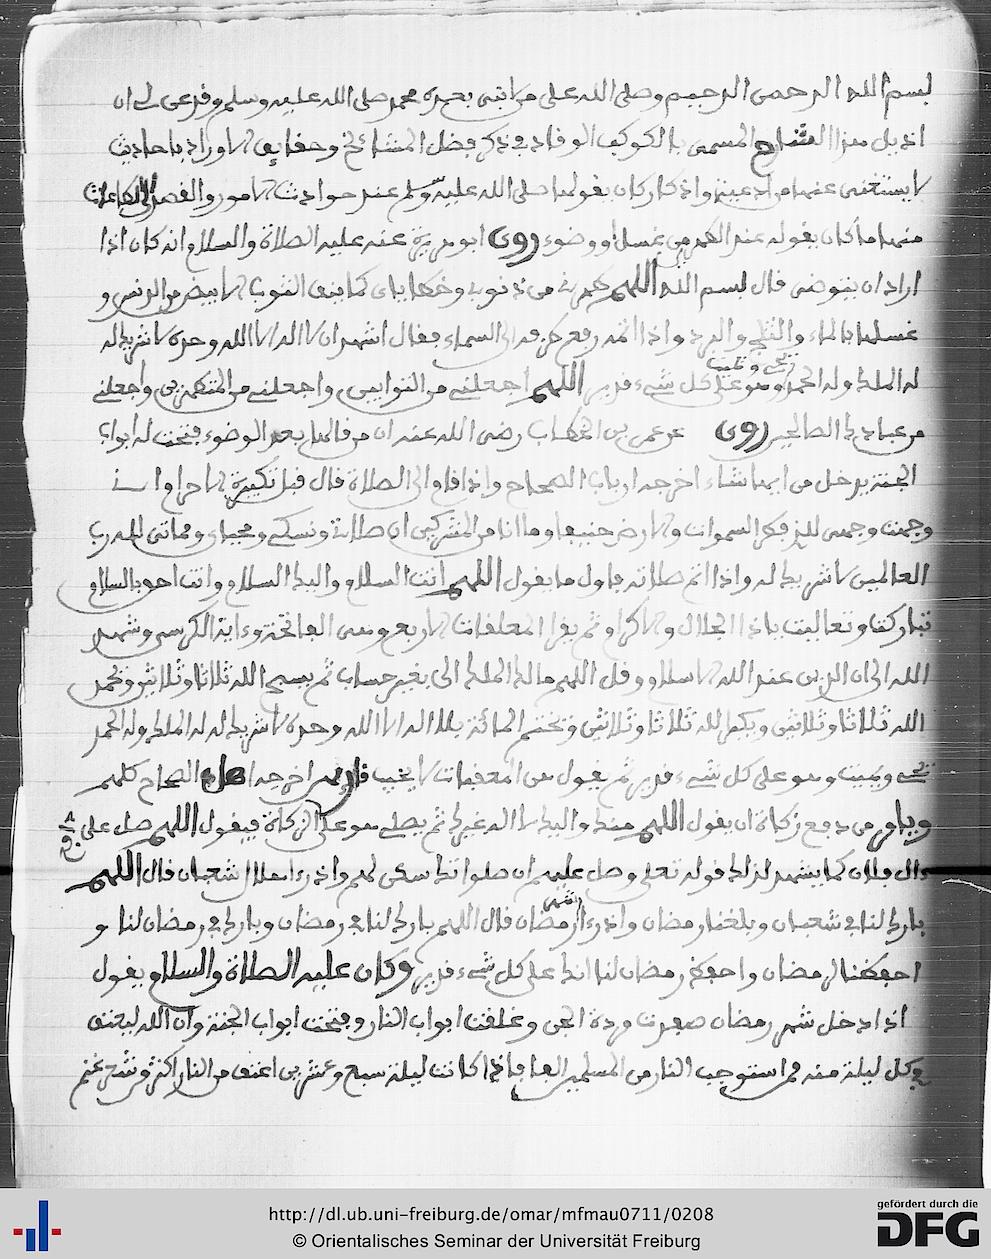 بسم الله الرحمن الرحيم وصلى الله على من لا نبي بعده محمد صلى الله عليه وسلم وقد عن لي ان
اذيل هذا الشارح المسمى بالكوكب الوقاد في ذكر فضل المشائخ وحقايق الاوراد باحاديث
لا يستغنى عنها من ادعية واذكار كان يقولها صلى الله عليه وسلم عند حوادث الامور والفصل
منها ما كان يقوله عند الطهر من غسل او وضوء روى ابو هريرة عنه عليه الصلاة والسلام انه كان اذا
اراد ان يتوضى قال بسم الله اللهم طهرني من ذنوبي وخطاياي كما ينقى الثوب الابيض من الدنس و
غسلها بالماء والثلج والبرد واذا اتمه رفع طرفه الى السماء فقال اشهد ان لا اله الا الله وحده لا شريك له
له الملك وله الحمد يحي ويميت وهو على كل شيء قدير اللهم اجعلني من التوابين واجعلني من المتطهرين واجعلني
من عبادك الصالحين روى عن عمر بن الخطاب رضى الله عنه ان من قالها بعد الوضوء فتحت له ابواب
الجنة يدخل من ايها شاء اخرجه ارباب الصحاح واذا قام الى الصلاة قال قبل تكبيرة الاحرام اني
وجهت وجهي للذي فطر السموات والارض حنيفا وما انا من المشركين ان صلاتي ونسكي ومحياي ومماتي لله رب
العالمين لا شريك له واذا اتم صلاته فاول ما يقول اللهم انت السلام واليك السلام وانت احق بالسلام
تباركت وتعاليت يا ذا الجلال والاكرام ثم يقرا المعلقات الاربع وهي الفاتحة وءاية الكرسي وشهد
الله الى ان الدين عند الله الاسلام وقل اللهم مالك الملك الى بغير حساب ثم يسبح الله ثلاثا وثلاثين ويحمد
الله ثلاثا وثلاثين ويكبر الله ثلاثا وثلاثين ويختم المائة بلا اله الا الله وحده لا شريك له له الملك وله الحمد
يحي ويميت وهو على كل شيء قدير ثم يقول هن المعقبات لا يخيب قايلهن اخرجه اهل الصحاح كلهم
ويامر من دفع زكاة ان يقول اللهم منك واليك لا اله غيرك ثم يصلي هو على الزكاة فيقول اللهم صل على
ءال فلان كما يشهد لذلك قوله تعلى وصل عليهم ان صلواتك سكن لهم واذا رءا هلال شعبان قال اللهم
بارك لنا في شعبان وبلغنا رمضان واذا رءا شهر رمضان قال اللهم بارك لنا في رمضان وبارك في رمضان لنا و
احفظنا لرمضان واحفظ رمضان لنا انك على كل شيء قدير وكان عليه الصلاة والسلام يقول
اذا دخل شهر رمضان صفدت مردة الجن وغلقت ابواب النار وفتحت ابواب الجنة وان الله ليعتق
في كل ليلة منه ممن استوجب النار من المسلمين الفا فاذا كانت ليلة سبع وعشرين اعتق من النار اكثر من شعر غنم
http://dl.ub.uni-freiburg.de/omar/mfmau0711/0208
© Orientalisches Seminar der Universität Freiburg
gefördert durch die
DFG